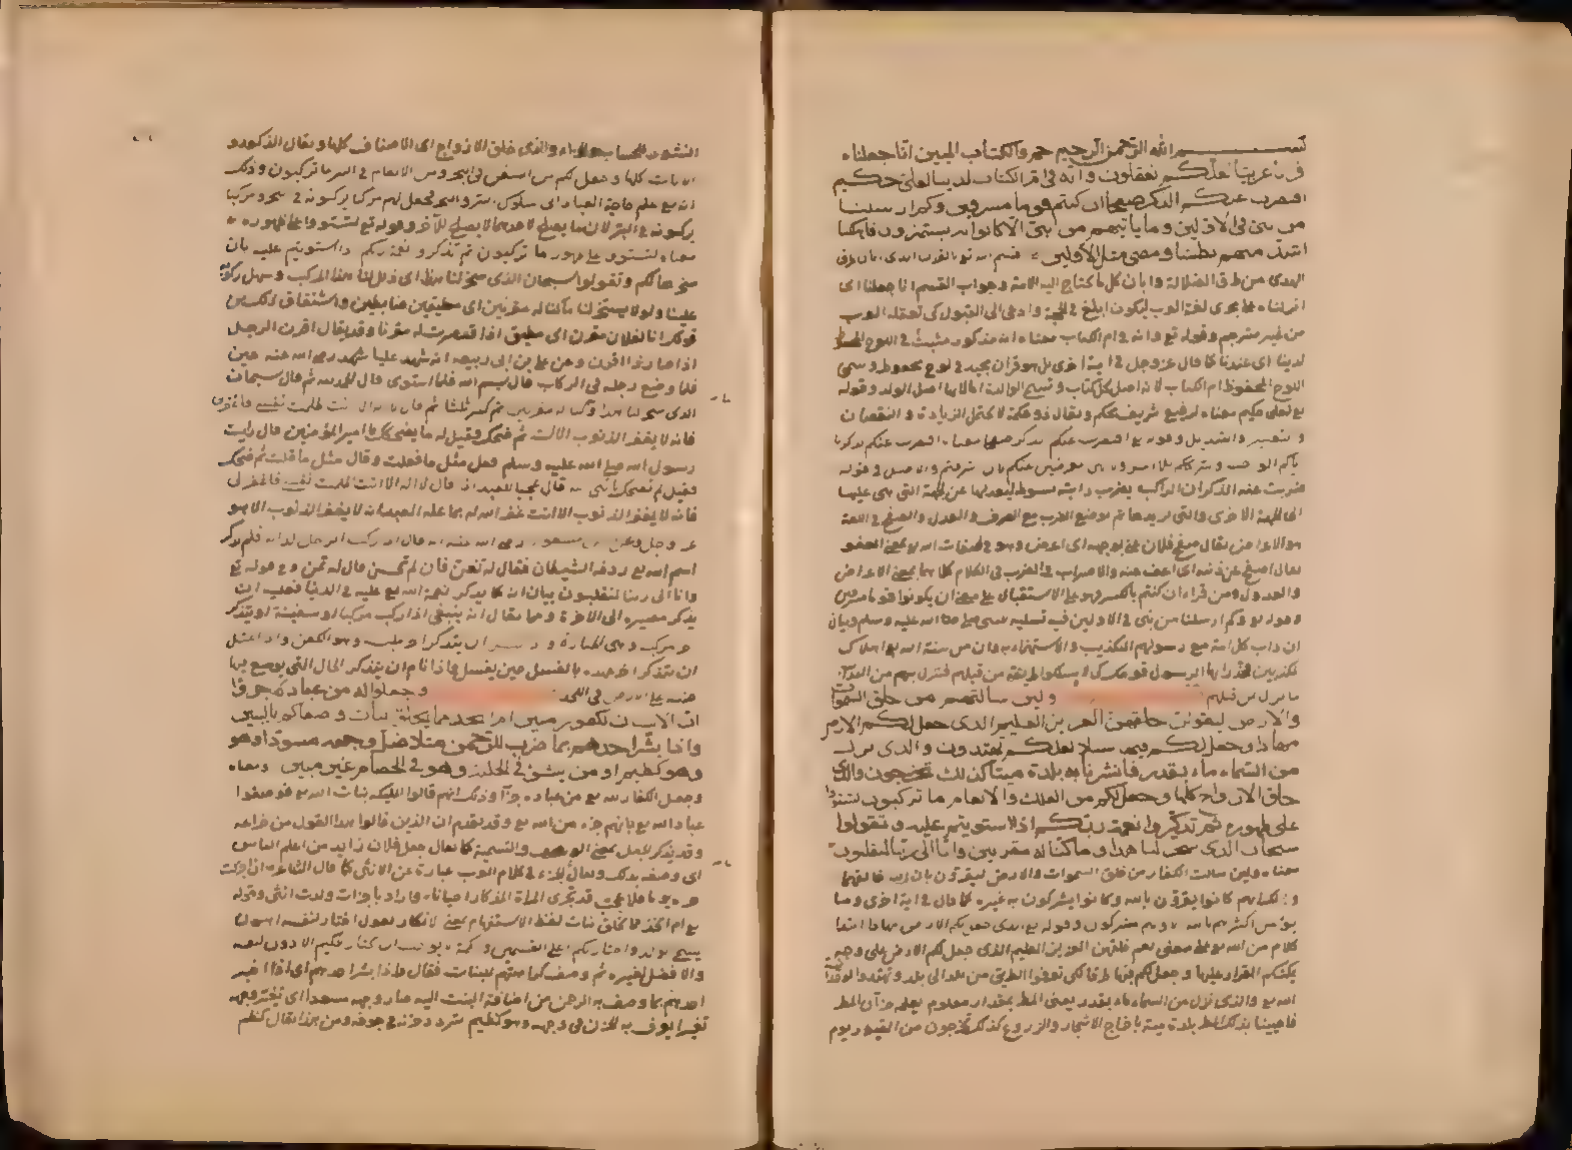 بسم الله الرحمن الرحيم حم والكتاب المبين انا جعلناه
قرآنا عربيا لعلكم تعقلون وانه في ام الكتاب لدينا لعلي حكيم
افنضرب عنكم الذكر صفحا ان كنتم قوما مسرفين وكم ارسلنا
من نبي في الاولين وما ياتيهم من نبي الا كانوا به يستهزون فاهلكنا
اشد منهم بطشا ومضى مثل الاولين قسم الله تع بالقرآن الذي ابان طرق
الهدى من طرق الضلالة وابان كل ما تحتاج اليه الامة وجواب القسم انا جعلناه اي
انزلناه على مجرى لغة العرب ليكون ابلغ في الحجة وادعى الى القبول كي تعقله العرب
من غير مترجم وقوله تع وانه في ام الكتاب معناه انه مذكور مثبت في اللوح
لدينا اي عندنا كما قال عز وجل في اية اخرى بل هو قران مجيد في لوح محفوظ وسمي
اللوح المحفوظ ام الكتاب لانه اصل كل كتاب وتسمى الوالدة اما لانها اصل الولد وقوله
تع لعلي حكيم معناه لرفيع شريف محكم ويقال ذو حكمة لا يحتمل الزيادة والنقصان
والتغيير والتبديل وقوله تع افنضرب عنكم الذكر صفحا معناه افنضرب عنكم
ضربت عنه الذكر ان الراكب يضرب دابته بسوط ليعدلها عن الجهة التي هي عليها
الى الجهة الاخرى والتي يريدها ثم يوضع الضرب مع الصرف والعدل والصفح في اللغة
هو الاعراض يقال صفح فلان عني بوجهه اي اعرض وهو في صفات الله تع بمعنى العفو
يقال اصفح عن ذنبه اي اعف عنه والاضراب في الضرب في الكلام كلاهما بمعنى الاعراض
والعدول ومن قراء ان كنتم بالكسر فهو على الاستقبال على معنى ان يكونوا قوما مسرفين
وقوله تع وكم ارسلنا من نبي في الاولين فيه تسلية للنبي صلى الله عليه وسلم وبيان
ان داب كل امة مع رسولهم التكذيب والاستهزاء به وان من سنة الله تع اهلاك
المكذبين فحذر ايها الرسول قومك كي لا يسلكوا طريقة من قبلهم فتنزل بهم من العذاب
ما نزل بمن قبلهم ولين سالتهم من خلق السموات
والارض ليقولن خلقهن العزيز العليم الذي جعل لكم الارض
مهادا وجعل لكم فيها سبلا لعلكم تهتدون والذي نزل
من السماء ماء بقدر فانشرنا به بلدة ميتا كذلك تخرجون والذي
خلق الازواج كلها وجعل لكم من الفلك والانعام ما تركبون لتستووا
على ظهوره ثم تذكروا نعمة ربكم اذا استويتم عليه وتقولوا
سبحان الذي سخر لنا هذا وما كنا له مقرنين وانا الى ربنا لمنقلبون
معناه ولين سالت الكفار من خلق السموات والارض ليقرون بان الله خالقهما
وذلك انهم كانوا يقرون بالله وكانوا يشركون به غيره كما قال في اية اخرى وما
يؤمن اكثرهم بالله الا وهم مشركون وقوله تع الذي جعل لكم الارض مهادا ابتدا
كلام من الله تع على معنى نعم خلقهن العزيز العليم الذي جعل لكم الارض على وجه
يمكنكم القرار عليها وجعل لكم فيها طرقا لكي تعرفوا الطريق من بلد الى بلد وتهتدوا
الله تع والذي نزل من السماء ماء بقدر يعني المطر بمقدار معلوم يعلمه خزان المطر
فاحيينا بذلك المطر بلدة ميتة باخراج الاشجار والزروع كذلك تخرجون من القبور يوم
النشور للحساب والجزاء والذي خلق الازواج اي الاصناف كلها ويقال الذكور و
الاناث كلها وجعل لكم من السفن في البحر ومن الانعام في البر ما تركبون وذلك
انه تع علم حاجة العباد الى سلوك البر والبحر فجعل لهم مركبا يركبونه في البحر ومركبا
يركبونه في البر لان ما يصلح لاحدهما لا يصلح للآخر وقوله تع لتستووا على ظهوره
معناه لتستووا على ظهور ما تركبون ثم تذكروا نعمة ربكم اذا استويتم عليه بان
سخرها لكم وتقولوا سبحان الذي سخر لنا هذا اي ذلل لنا هذا المركب وسهل ركوبه
علينا ولولا تسخيره لنا ما كنا له مقرنين اي مطيقين ضابطين واشتقاق ذلك من
قولك انا لفلان مقرن اي مطيق اذا قد صرت له مقرنا وقد يقال اقرن الرجل
اذا صار ذا اقرن وعن علي بن ابي ربيعة انه شهد عليا رضي الله عنه حين
فلما وضع رجله في الركاب قال بسم الله فلما استوى قال الحمد لله ثم قال سبحان
الذي سخر لنا هذا وما كنا له مقرنين ثم كبر ثلثا ثم قال لا اله الا انت ظلمت نفسي فاغفر لي
فانه لا يغفر الذنوب الا انت ثم ضحك وقيل له ما يضحكك يا امير المؤمنين قال رايت
رسول الله صلى الله عليه وسلم فعل مثل ما فعلت وقال مثل ما قلت ثم ضحك
فقيل له ما يضحكك يا نبي الله قال عجبا للعبد اذا قال لا اله الا انت ظلمت نفسي فاغفر لي
فانه لا يغفر الذنوب الا انت غفر الله له بما علم العبد انه لا يغفر الذنوب الا هو
عز وجل وعن ابن مسعود رضي الله عنه انه قال اذا ركب الرجل لدابة فلم يذكر
اسم الله تع ردفه الشيطان فقال له تغن فان لم يحسن قال له تمن وفي قوله تع
وانا الى ربنا لمنقلبون بيان انه كما يذكر نعمة الله تع عليه في الدنيا فعليه ان
يذكر مصيره الى الاخرة ومما يقال انه ينبغي اذا ركب مركبا او سفينة ان يتذكر
اخر مركبه وهي الجنازة واذا لبس ان يتذكر اخر ملبسه وهو الكفن واذا اغتسل
ان يتذكر اخر عهده بالغسل حين يغسل واذا نام ان يتذكر الحال التي يوضع فيها
جنبه على الارض في اللحد وجعلوا له من عباده جزوا
ان الانسان لكفور مبين ام اتخذ مما يخلق بنات وصفاكم بالبنين
واذا بشر احدهم بما ضرب للرحمن مثلا ظل وجهه مسودا وهو
وهو كظيم او من ينشؤ في الحلية وهو في الخصام غير مبين ومعناه
وجعل الكفار لله تع من عباده جزأ وذلك انهم قالوا الملئكة بنات الله تع فوصفوا
عباد الله تع بانهم جزء من الله تع وقد تقدم ان الذين قالوا هذا القول من خزاعة
وقد يذكر الجعل بمعنى الوصف والتسمية كما يقال جعل فلان زيدا من اعلم الناس
اي وصفه بذلك ويقال الجزء في كلام العرب عبارة عن الانثى كما قال الشاعر ان اجزأت
حرة يوما فلا عجب قد تجزئ المراة المذكار احيانا واراد باجزات ولدت انثى وقوله
تع ام اتخذ مما يخلق بنات لفظ الاستفهام بمعنى الانكار يقول اختار لنفسه
والافضل لغيره ثم وصف كراهتهم للبنات فقال واذا بشر احدهم اي اذا اخبر
احدهم بما وصف به الرحمن من اضافة البنت اليه صار وجهه مسودا اي تغير وجهه
تغيرا يعرف به الحزن في وجهه وهو كظيم متردد حزنه في جوفه ومن هذا يقال كظم